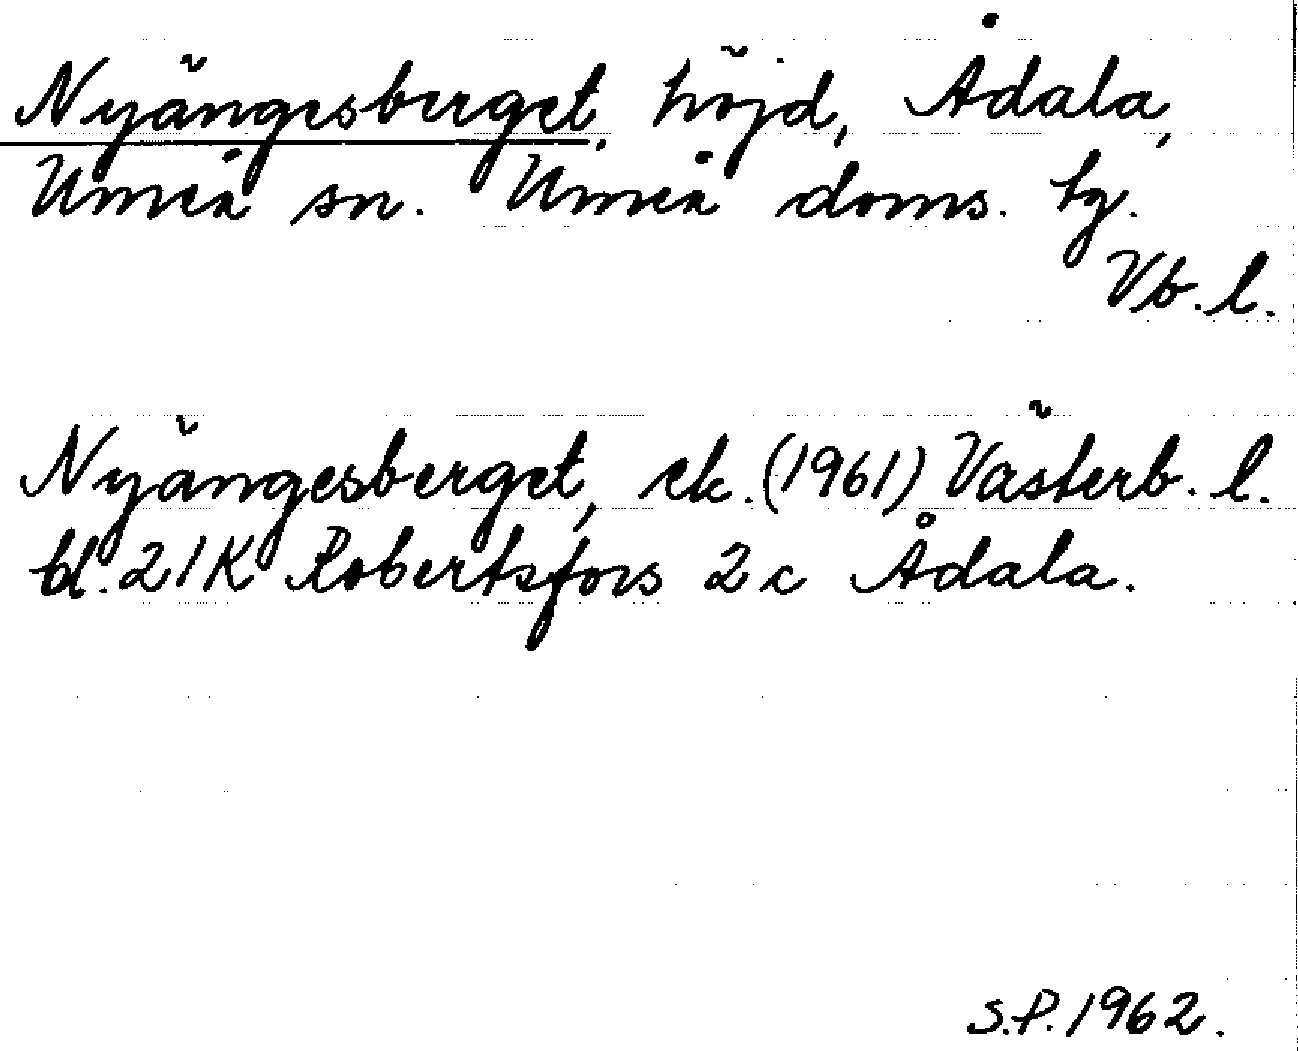 Nyängesberget, höjd, Ådala,
Umeå sn. Umeå doms. tg.
Vb. l.
Nyängesberget, ek. (1961) Västerb. l.
bl. 21K Robertsfors 2c Ådala.
S.P. 1962.